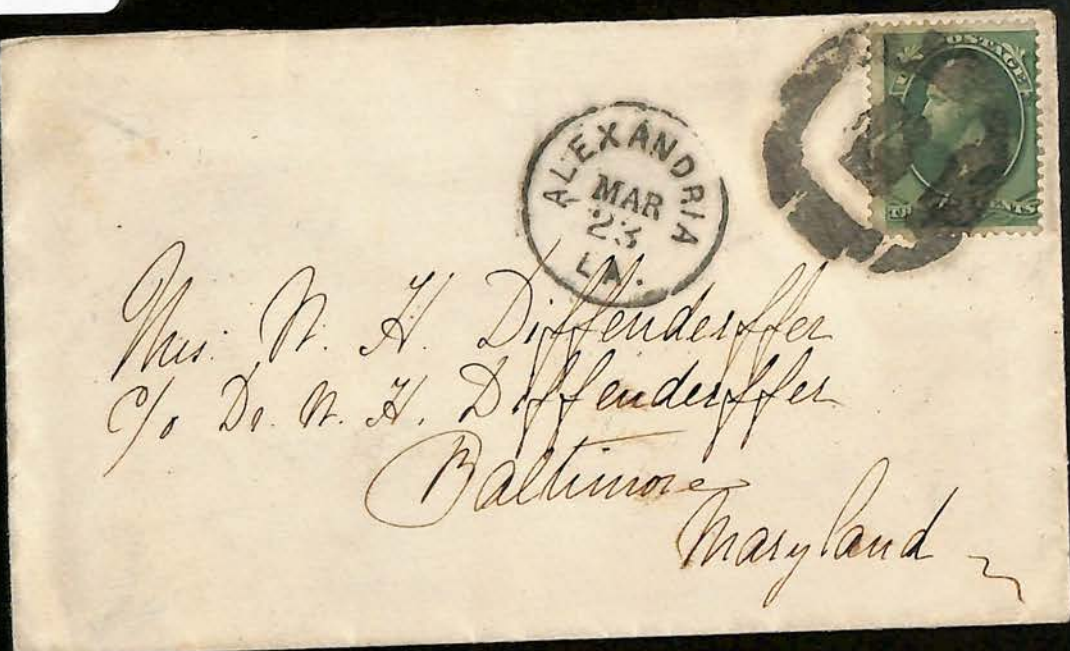 U.S. POSTAGE
THREE CENTS
ALEXANDRIA
MAR
23
LA.
Mrs. W. H. Diffenderffer
c/o Dr. W. H. Diffenderffer
Baltimore
Maryland